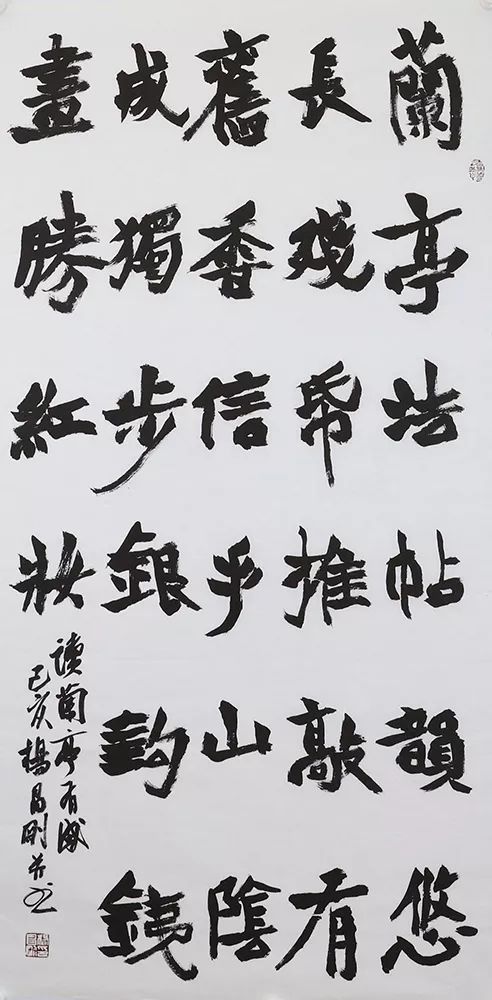 蘭亭法帖韻悠
長殘帋推敲有
舊香信手山陰
成獨步銀鈎銕
畫勝紅妝
讀蘭亭有感
己亥楊昌剛并書